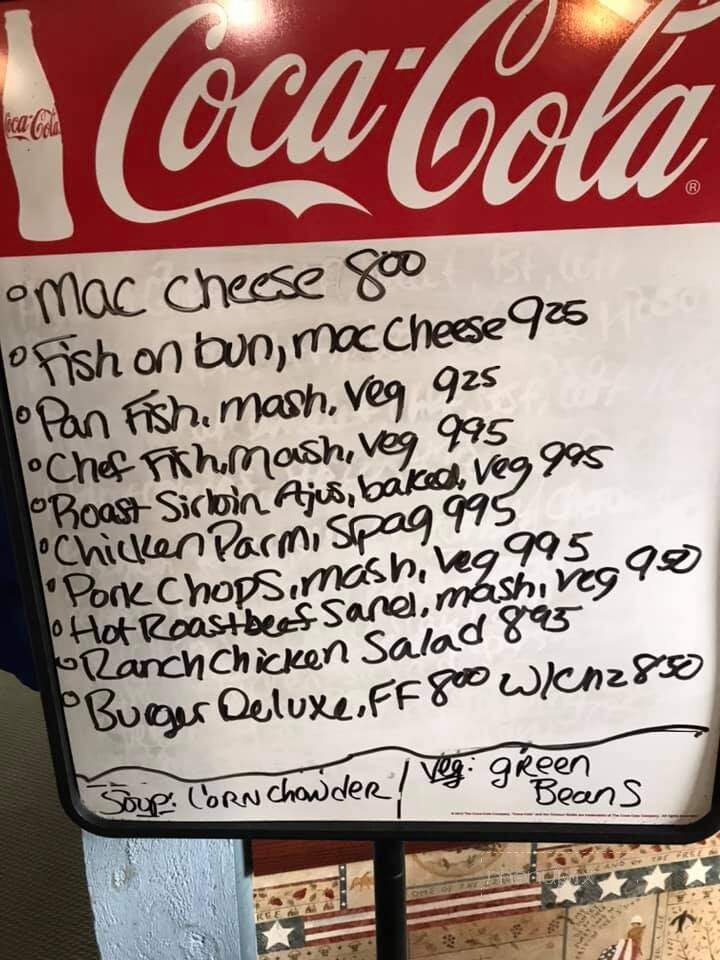 Coca-Cola
Coca-Cola ®
Mac Cheese 800
Fish on bun, mac Cheese 925
Pan Fish, mash, Veg 925
Chef Fish, Mash, Veg 995
Roast Sirloin Ajus, baked, Veg 995
Chicken Parm, Spag 995
Pork Chops, mash, Veg 995
Hot Roastbeef Sand, mash, veg 950
Ranch Chicken Salad 895
Burger Deluxe, FF 800 w/chz 850
Soup: Corn Chowder / Veg: green
Beans